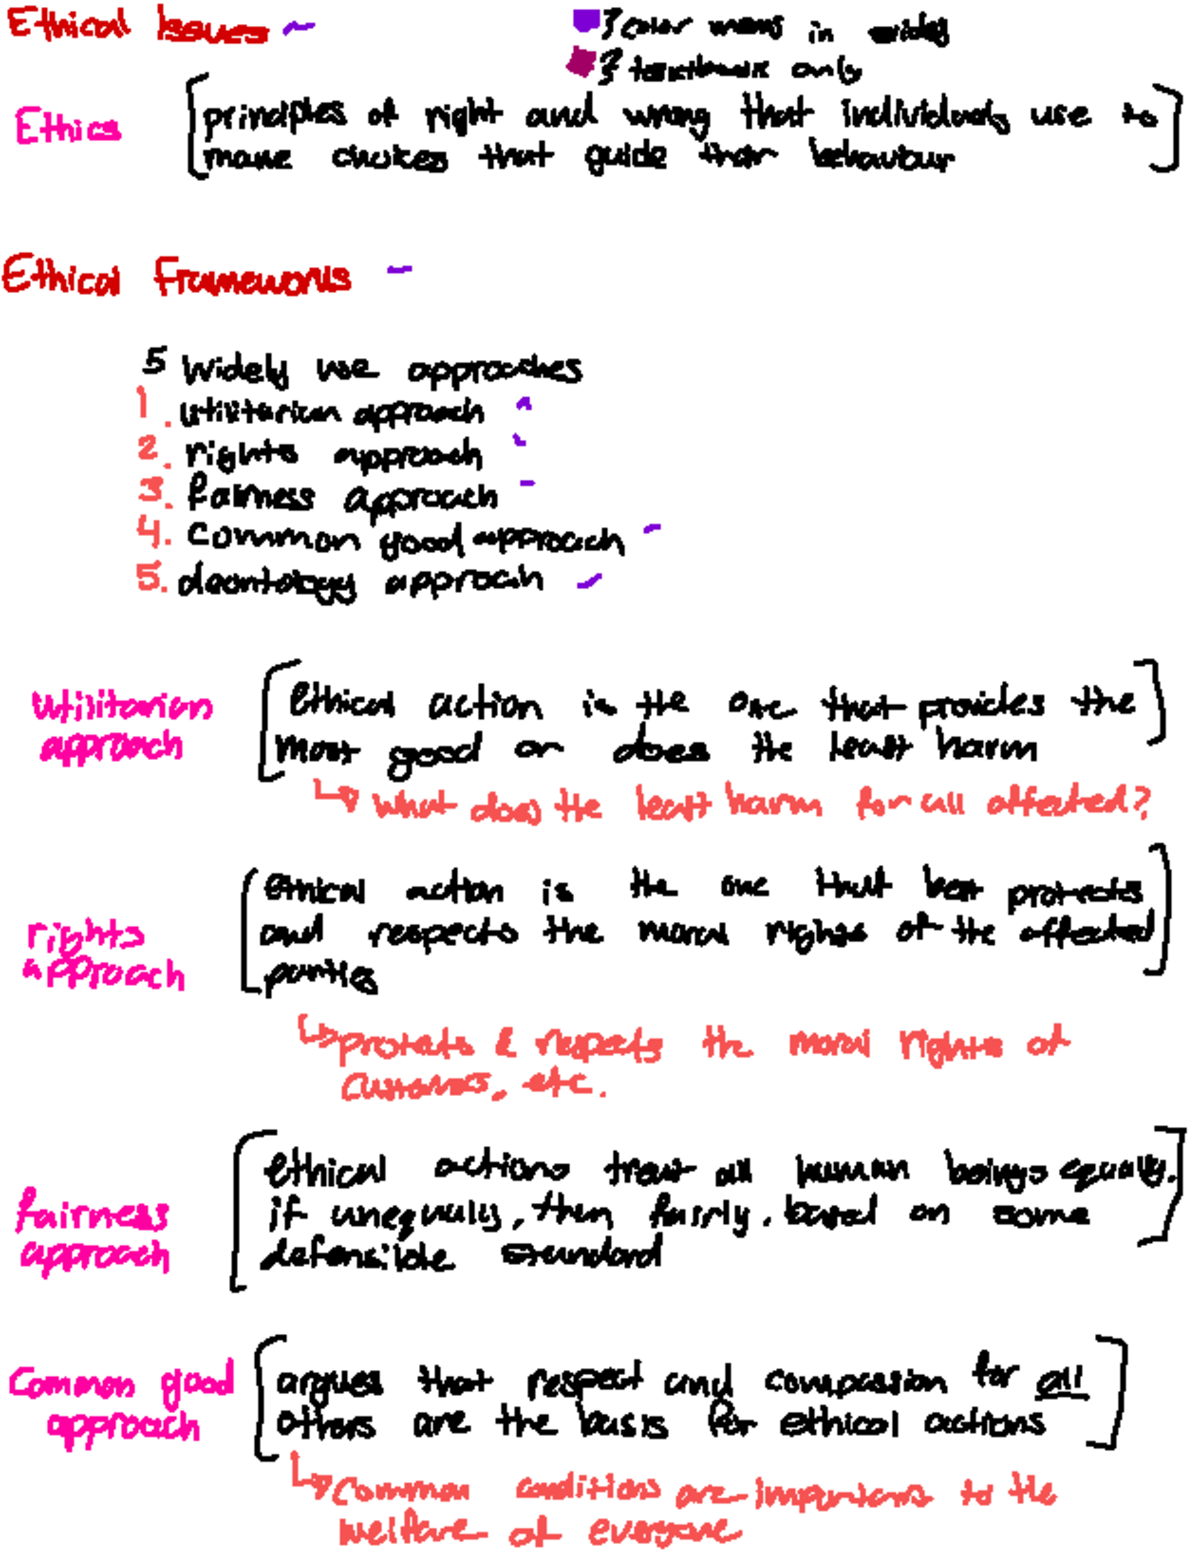 Ethical Issues
color means in
textbook only
Ethics
principles of right and wrong that individuals use to
make choices that guide their behaviour
Ethical Frameworks
5 Widely use approaches
1. utilitarian approach
2. rights approach
3. fairness approach
4. common good approach
5. deontology approach
utilitarian
approach
ethical action is the one that provides the
most good or does the least harm
↳ what does the least harm for all affected?
rights
approach
ethical action is the one that best protects
and respects the moral rights of the affected
parties
↳ protects & respects the moral rights of
customers, etc.
fairness
approach
ethical actions treat all human beings equally.
if unequally, then fairly, based on some
defensible standard
Common good
approach
argues that respect and compassion for all
others are the basis for ethical actions
↳ Common conditions are important to the
welfare of everyone